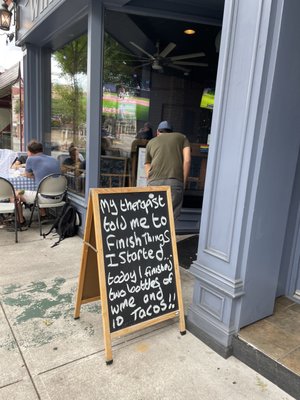 My therapist
told me to
Finish Things
I Started...
today I finished
two bottles of
wine and
10 Tacos!!